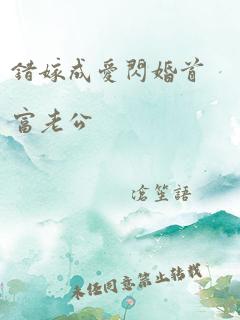 錯嫁成愛閃婚首
富老公
滄笙語
未經同意禁止轉載